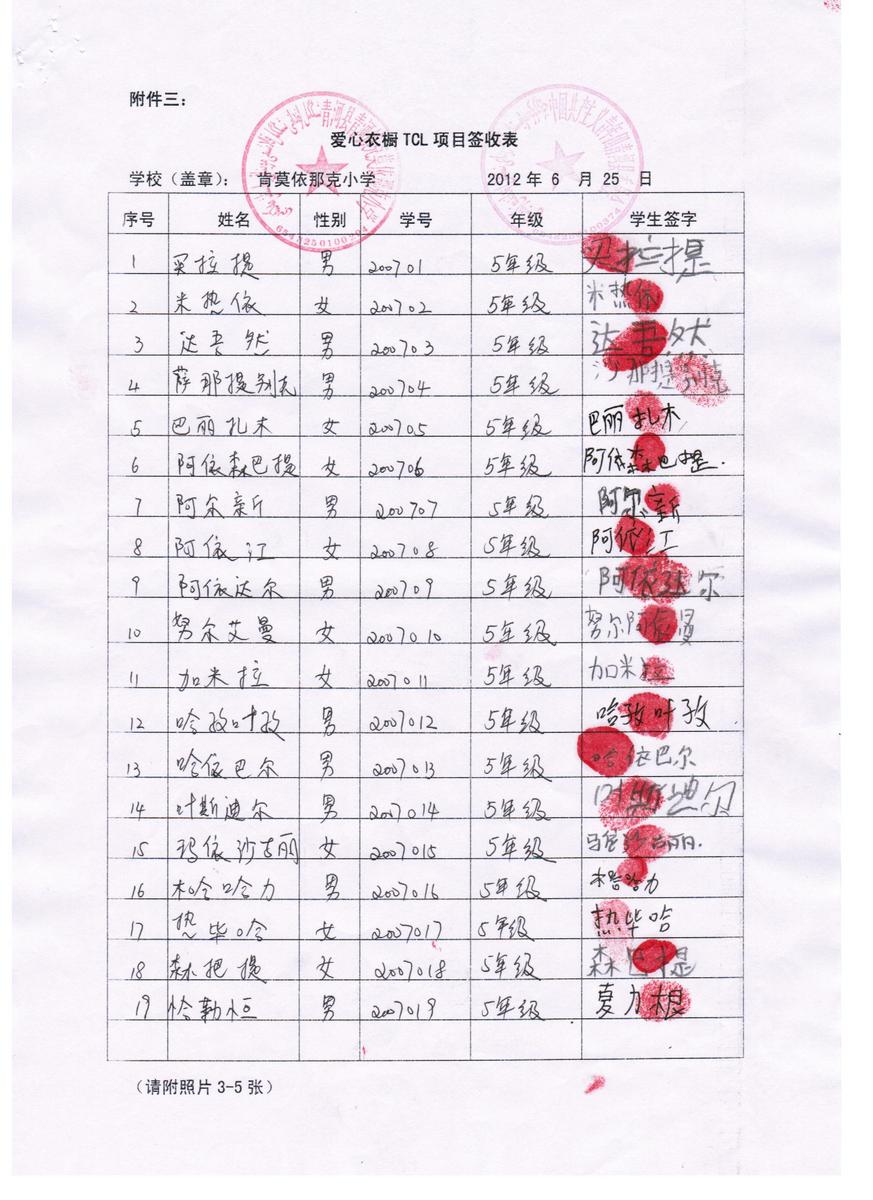 附件三：
爱心衣橱TCL项目签收表
学校（盖章）： 肯莫依那克小学 2012年 6 月 25 日
序号 姓名 性别 学号 年级 学生签字
1 买拉提 男 200701 5年级 买拉提
2 米热依 女 200702 5年级 米热依
3 达吾然 男 200703 5年级 达吾然
4 萨那提别克 男 200704 5年级 沙那提别克
5 巴丽扎木 女 200705 5年级 巴丽扎木
6 阿依森巴提 女 200706 5年级 阿依森巴提.
7 阿尔新 男 200707 5年级 阿尔新
8 阿依江 女 200708 5年级 阿依江
9 阿依达尔 男 200709 5年级 阿依达尔
10 努尔艾曼 女 2007010 5年级 努尔阿依曼
11 加米拉 女 2007011 5年级 加米拉
12 哈孜叶孜 男 2007012 5年级 哈孜叶孜
13 哈依巴尔 男 2007013 5年级 哈依巴尔
14 叶斯迪尔 男 2007014 5年级 叶斯迪尔
15 玛依沙古丽 女 2007015 5年级 玛依沙古丽.
16 木哈哈力 男 2007016 5年级 木哈哈力
17 热毕哈 女 2007017 5年级 热毕哈
18 森把提 女 2007018 5年级 森巴提
19 恰勒恒 男 2007019 5年级
（请附照片3-5张）